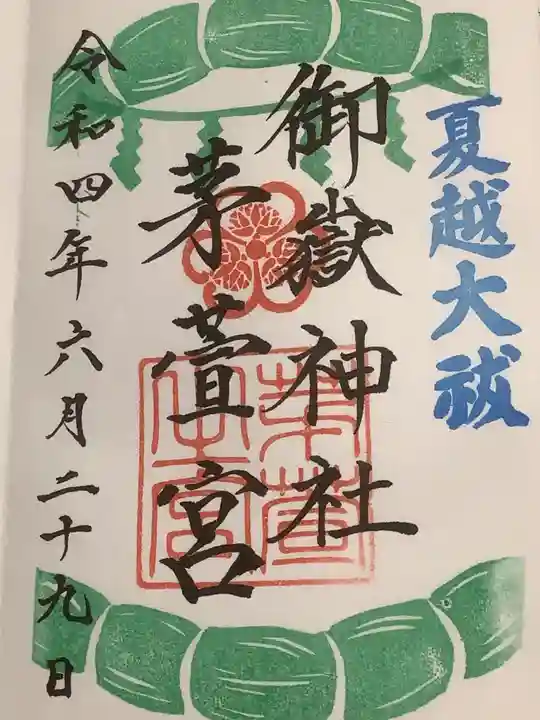 夏越大祓
御嶽神社
茅萱宮
令和四年六月二十九日
茅萱
之宮